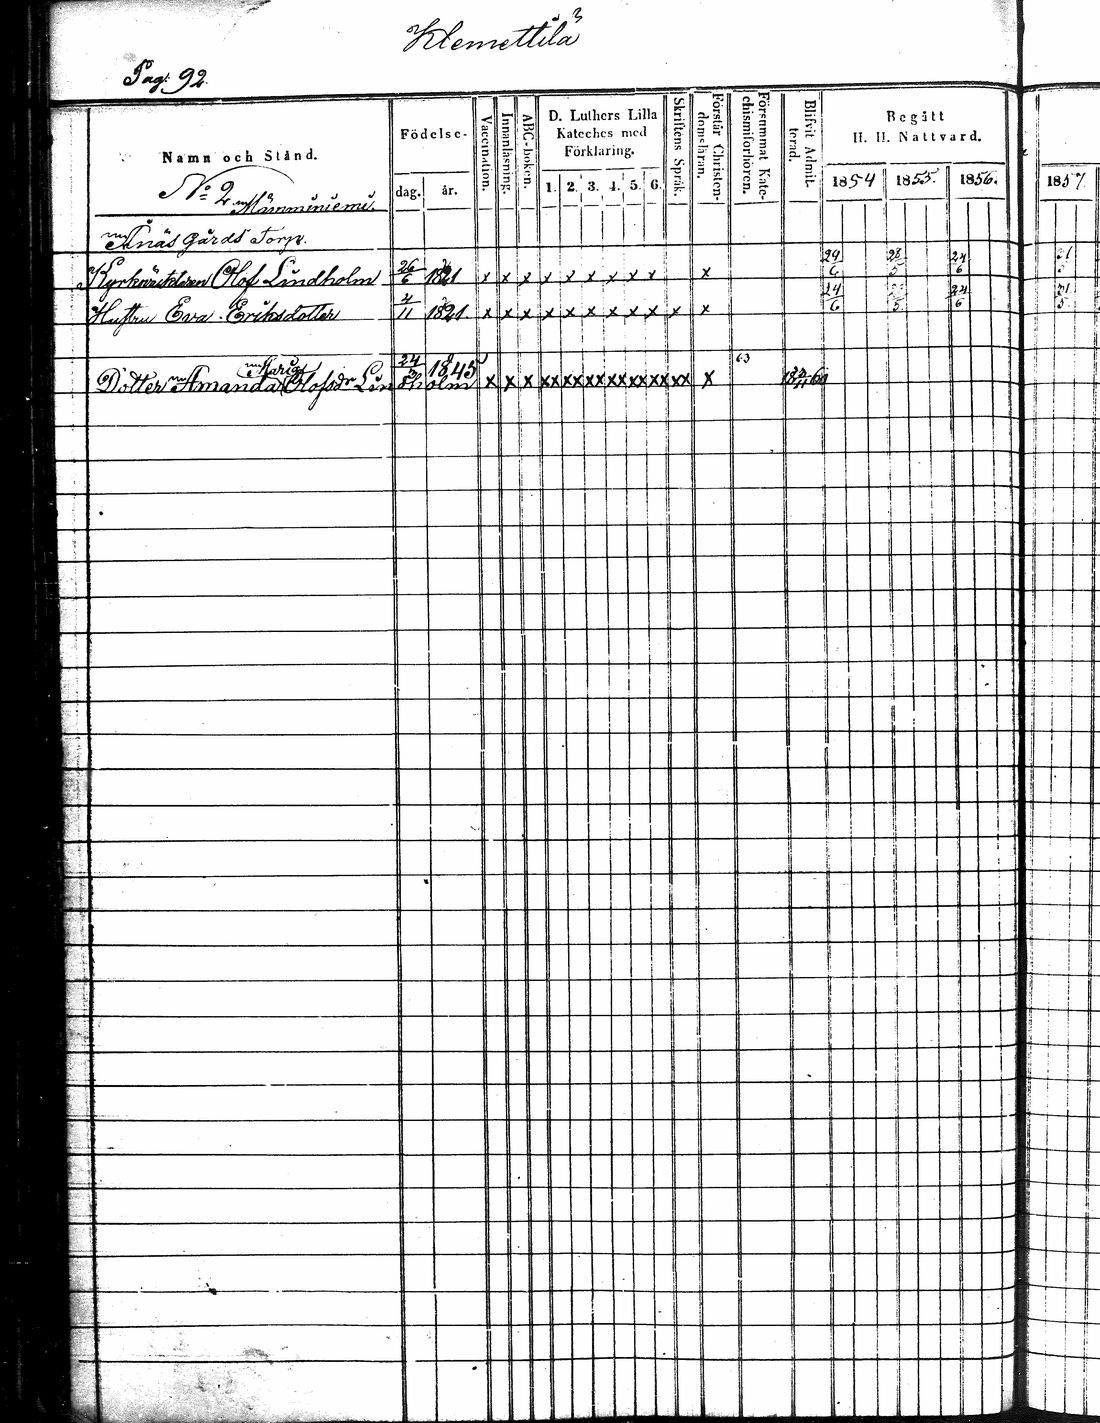 Klemettilä
Pag: 92.
Namn och Stånd.
Födelse-
dag. år.
Vaccination.
Innanläsning.
ABC-boken.
D. Luthers Lilla
Kateches med
Förklaring.
1. 2. 3. 4. 5. 6.
Skriftens Språk.
Förstår Christen-
domsläran.
Försummat Kate-
chismiförhören.
Blifvit Admit-
terad.
Begått
H. H. Nattvard.
1854 1855. 1856. 1857.
No 2 Mämminiemi.
Änäs Gårds Torp.
Olof Lindholm 26/6 1821 x x x x x x x x x x 24/6 28/5 24/6
Hustru Eva Eriksdotter 4/11 1821. x x x x x x x x x x x 24/6 24/6
Maria
Dotter Amanda Olofsdr Lindholm 24/5 1845 x x x xx xx xx xx xx xx xx x 63